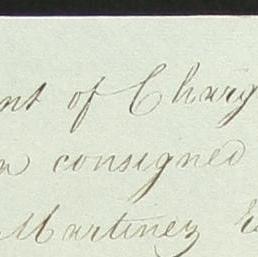 nt of Charg
n consigned
Martinez